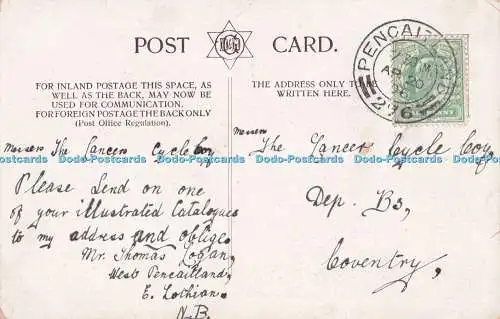 POST CARD.
FOR INLAND POSTAGE THIS SPACE, AS
WELL AS THE BACK, MAY NOW BE
USED FOR COMMUNICATION.
FOR FOREIGN POSTAGE THE BACK ONLY
(Post Office Regulation).
THE ADDRESS ONLY TO
WRITTEN HERE.
PENCAITLAND
276
Messrs The Lancers Cycle Coy
Please Send on one
of your illustrated Catalogues
to my address and oblige.
Mr. Thomas Logan,
West Pencaitland,
E. Lothian,
N.B.
Messrs
The Lancers Cycle Coy,
Dep. Bs,
Coventry,
Dodo-Postcards Dodo-Postcards Dodo-Postcards Dodo-Postcards Dodo-Postcards